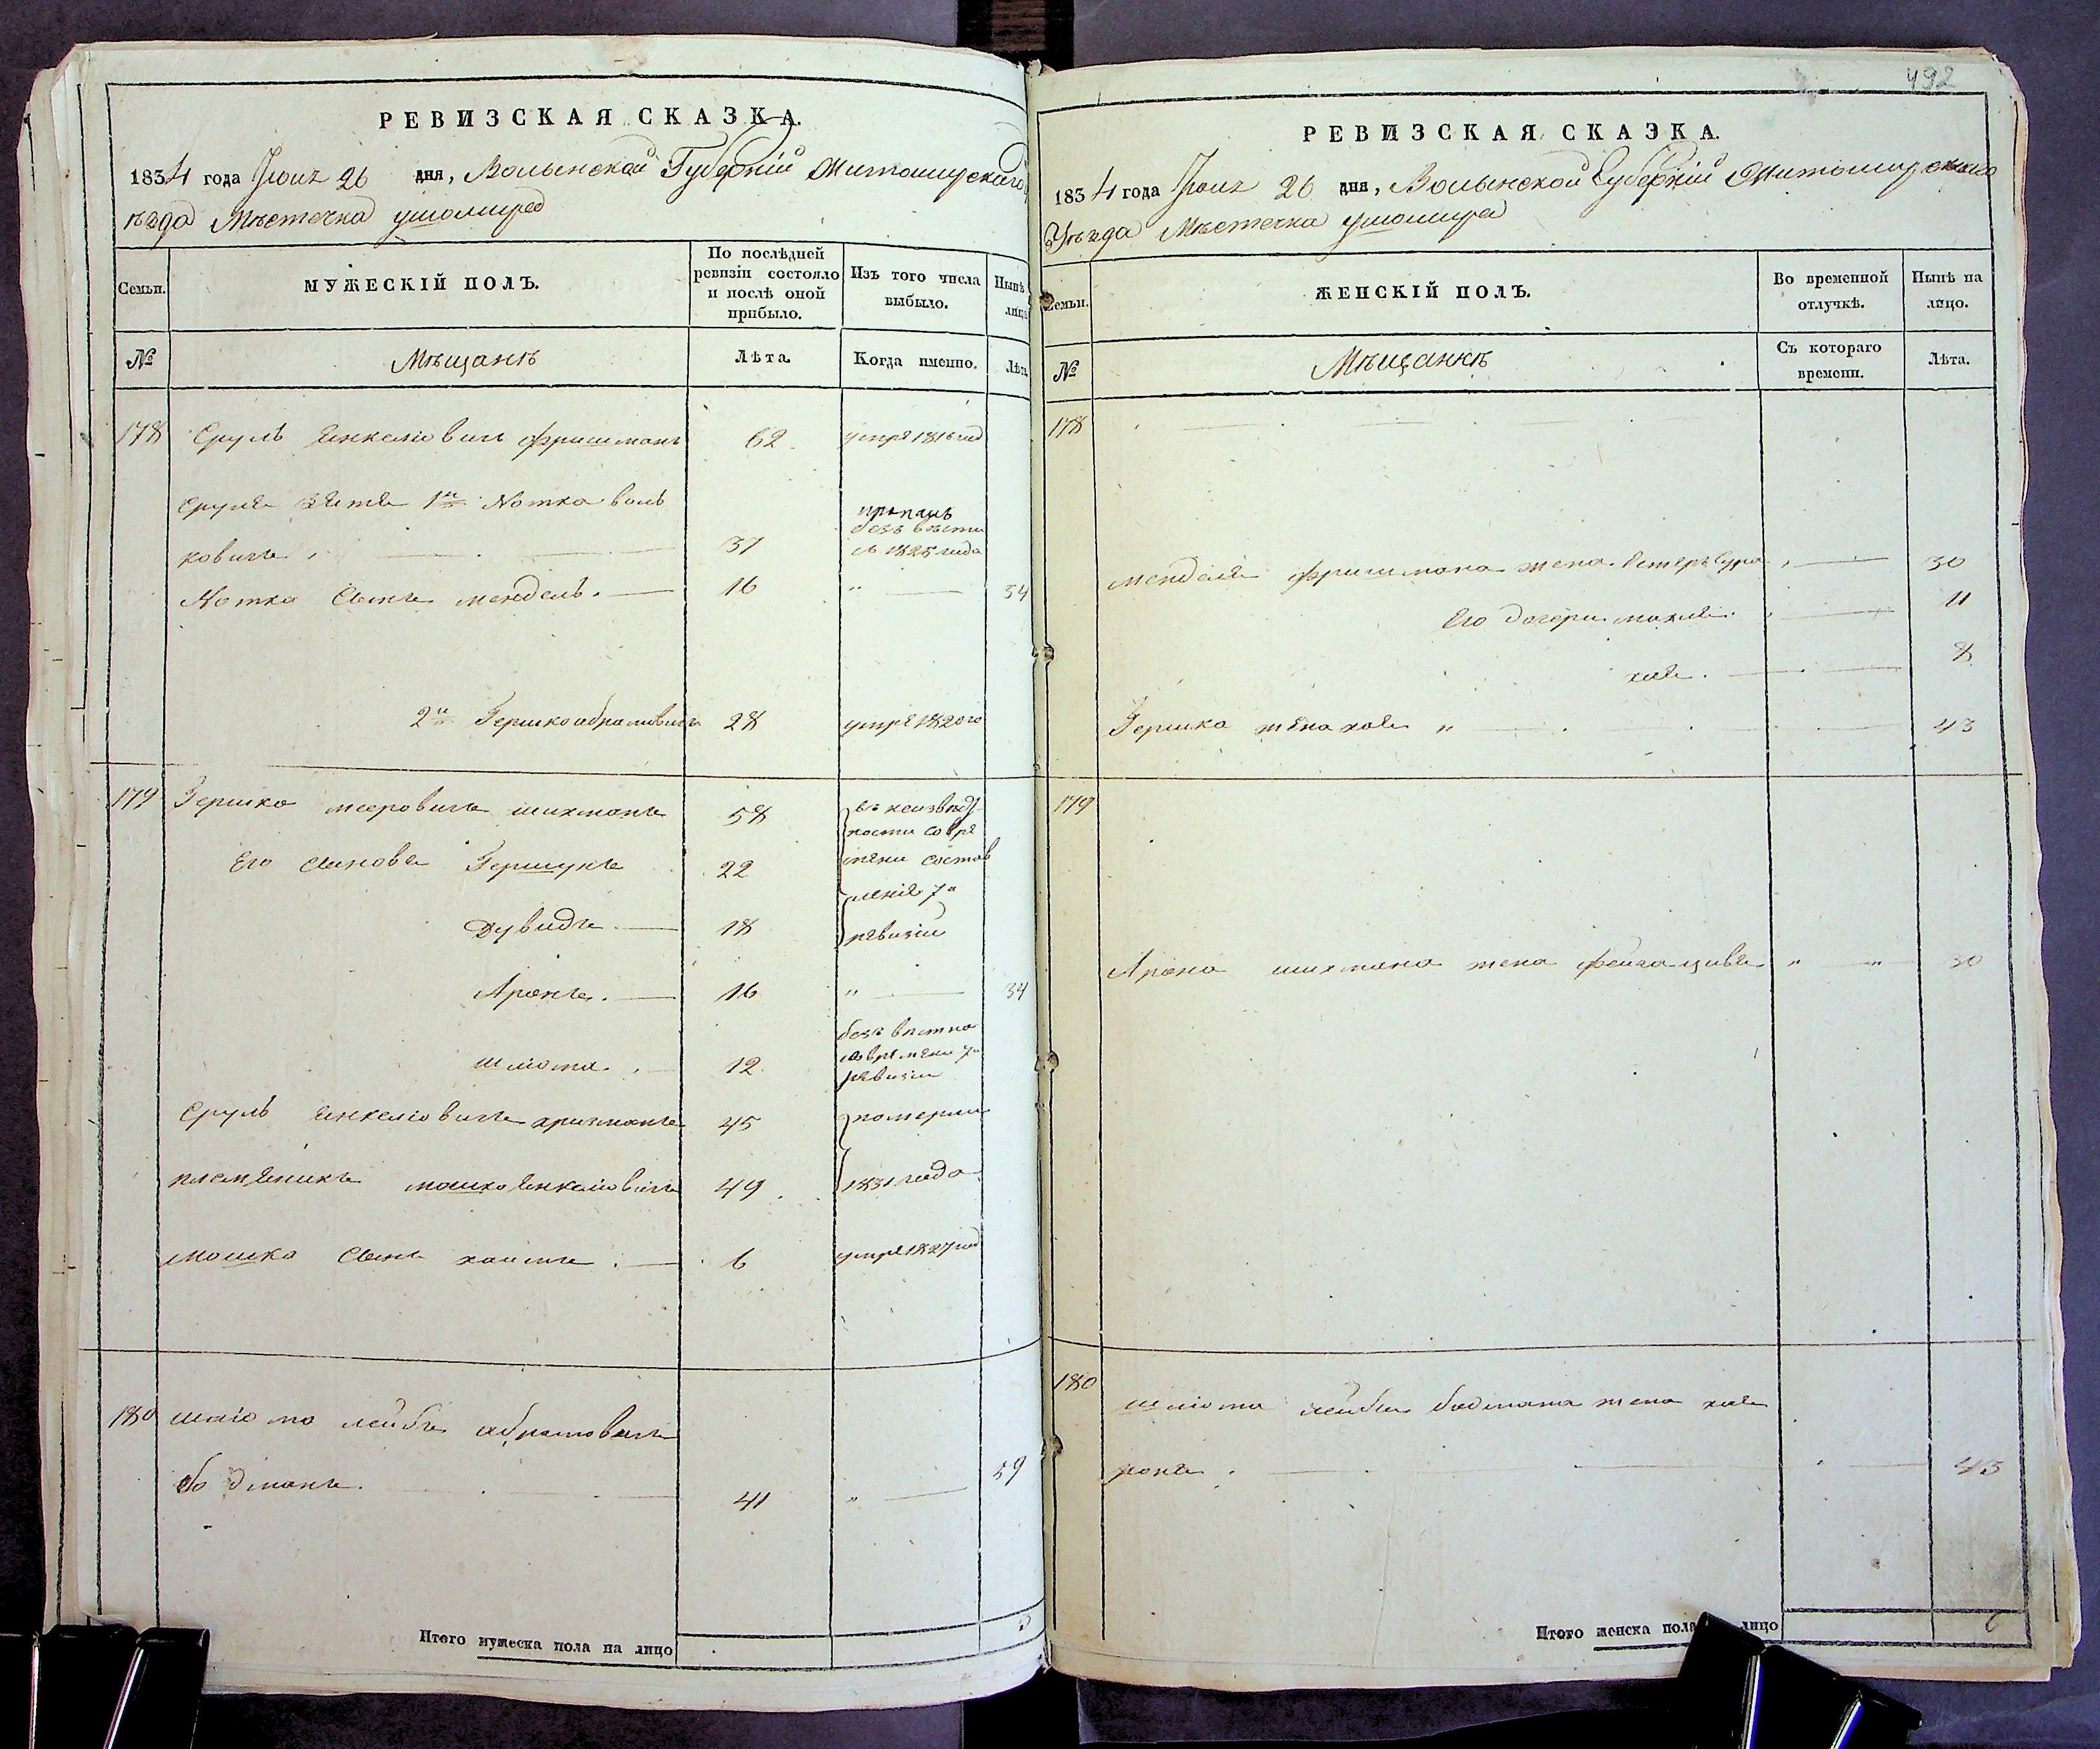 РЕВИЗСКАЯ СКАЗКА.
1834 года Іюня 26 дня, Волынской Губерніи Житомирскаго
ѣзда Мѣстечка ушомира
Семьи.
МУЖЕСКІЙ ПОЛЪ.
По послѣдней ревизіи состояло и послѣ оной прибыло.
Изъ того числа выбыло.
Нынѣ лицо
№
Мѣщанѣ
Лѣта.
Когда именно.
Лѣта
178 Сруль Янкеліовичъ фришманъ 62 умре 1816 год
Сруля зятя 1й Nотка воль
ковичъ 37 пропалъ безъ вѣсти съ 1825 года
Nотка Сынъ мендель. 16 " 34
2й Гершко абрамовичъ 28 умре 1820го
179 Гершко мееровичъ шихманъ 58 въ неизвѣс
ности со вре
Его Сыновя Гершунъ 22 мени состав
ленія 7й
Дувидъ 18 ревизіи
Аронъ. 16 " 34
шліома. 12 безъ вѣстно со времени 7й ревизіи
Сруль Янкеліовичъ 45 померли
племяникъ мошко Янкеліовичъ 49 1831 года
мошко Сынъ хаимъ 6 умре 1827 год
180 шліома лейбъ абрамовичъ
бодманъ. 41 " 59
Итого мужеска пола на лицо 3
492
РЕВИЗСКАЯ СКАЗКА.
1834 года Іюня 26 дня, Волынской Губерніи Житомирскаго
Уѣзда Мѣстечка ушомира
Семьи.
ЖЕНСКІЙ ПОЛЪ.
Во временной отлучкѣ.
Нынѣ на лицо.
№
Мѣщанкѣ
Съ котораго времени.
Лѣта.
178
менделя фришмана жена Естеръ Сура 30
Его дочери махля 11
хая. 8
Гершка жена хая " 43
179
Арона шихмана жена фейга цивя " " 30
180 шліома лейбы бодмана жена хая
роня. 43
Итого женска пола лицо 6